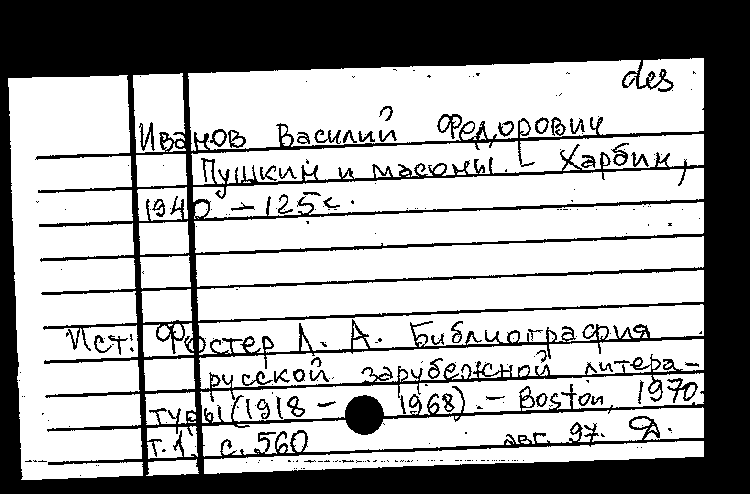 des
Иванов Василий Федорович
Пушкин и масоны. – Харбин,
1940 – 125 с.
Ист: Фостер Л. А. Библиография
русской зарубежной литера-
туры (1918 – 1968). – Boston, 1970.
т. 1. с. 560 авг. 97. Д.